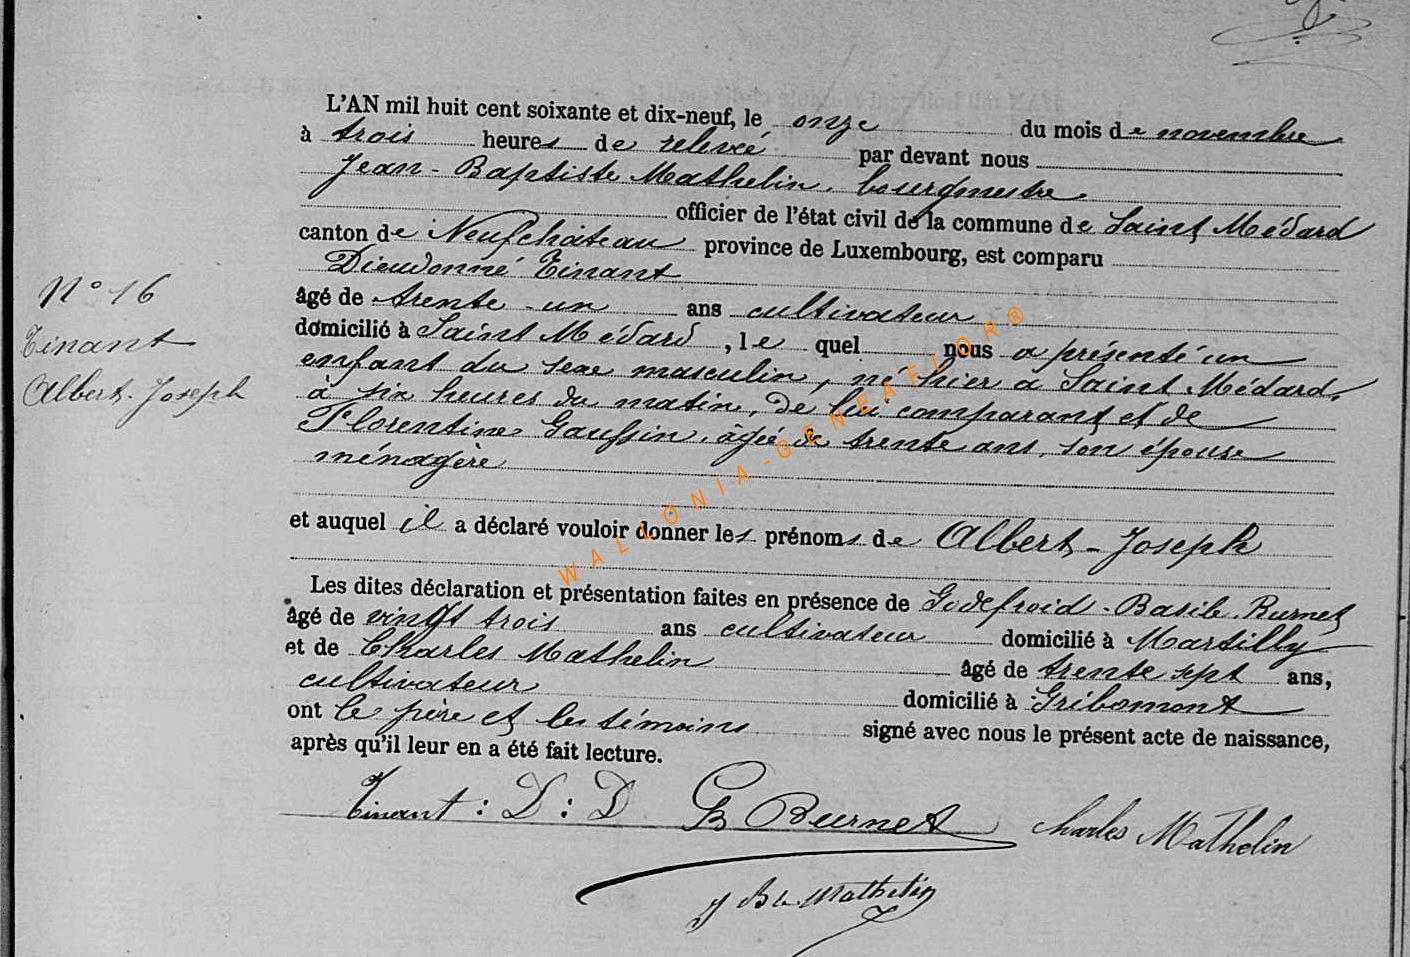 L'AN mil huit cent soixante et dix-neuf, le onze du mois de novembre
à trois heures de relevée par devant nous
Jean-Baptiste Mathelin, bourgmestre
officier de l'état civil de la commune de Saint Médard
canton de Neufchâteau province de Luxembourg, est comparu
Dieudonné Tinant
âgé de trente-un ans cultivateur
domicilié à Saint Médard, le quel nous a présenté un
enfant du sexe masculin, né hier à Saint Médard,
à six heures du matin, de lui comparant et de
Florentine Gaussin, âgée de trente ans, son épouse
ménagère
et auquel il a déclaré vouloir donner les prénoms de Albert-Joseph
Les dites déclaration et présentation faites en présence de Godefroid-Basile Burnet
âgé de vingt trois ans cultivateur domicilié à Martilly
et de Charles Mathelin âgé de trente sept ans,
cultivateur domicilié à Gribomont
ont le père et les témoins signé avec nous le présent acte de naissance,
après qu'il leur en a été fait lecture.
Tinant : D : D GB Burnet Charles Mathelin
J Bte Mathelin
N° 16
Tinant
Albert-Joseph
WALLONIA-GENEAFLOR®